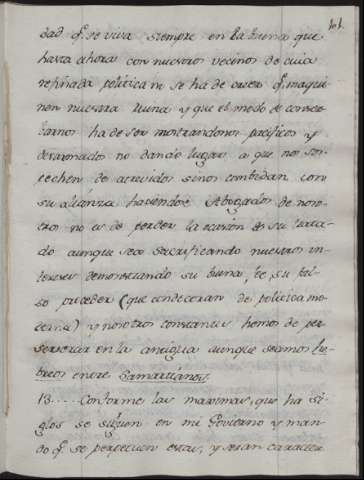 101.
dad q.e se viva siempre en la buena que
hasta ahora con nuestros vecinos de cuia
refinada politica ni se ha de creer q.e maqui
nen nuestra ruina y que el modo de conser
barnos ha de ser mostrandonos pacificos y
desarmados no dando lugar a que nos sos
pechen de atrevidos si nos combidan con
su alianza haciendose Abogados de noso
tros no es de perder la razon de su trata
do aunque sea sacrificando nuestros in
tereses demonstrando su buena fe, su fal
so proceder (que condecoran de politica mo
derna) y nosotros constantes hemos de per
serverar en la antigua aunque seamos He
breos entre Samaritanos.
13.... Conforme las maximas, que ha si
glos se siguen en mi Govierno y man
do q.e se perpetuen estas, y seran caracter